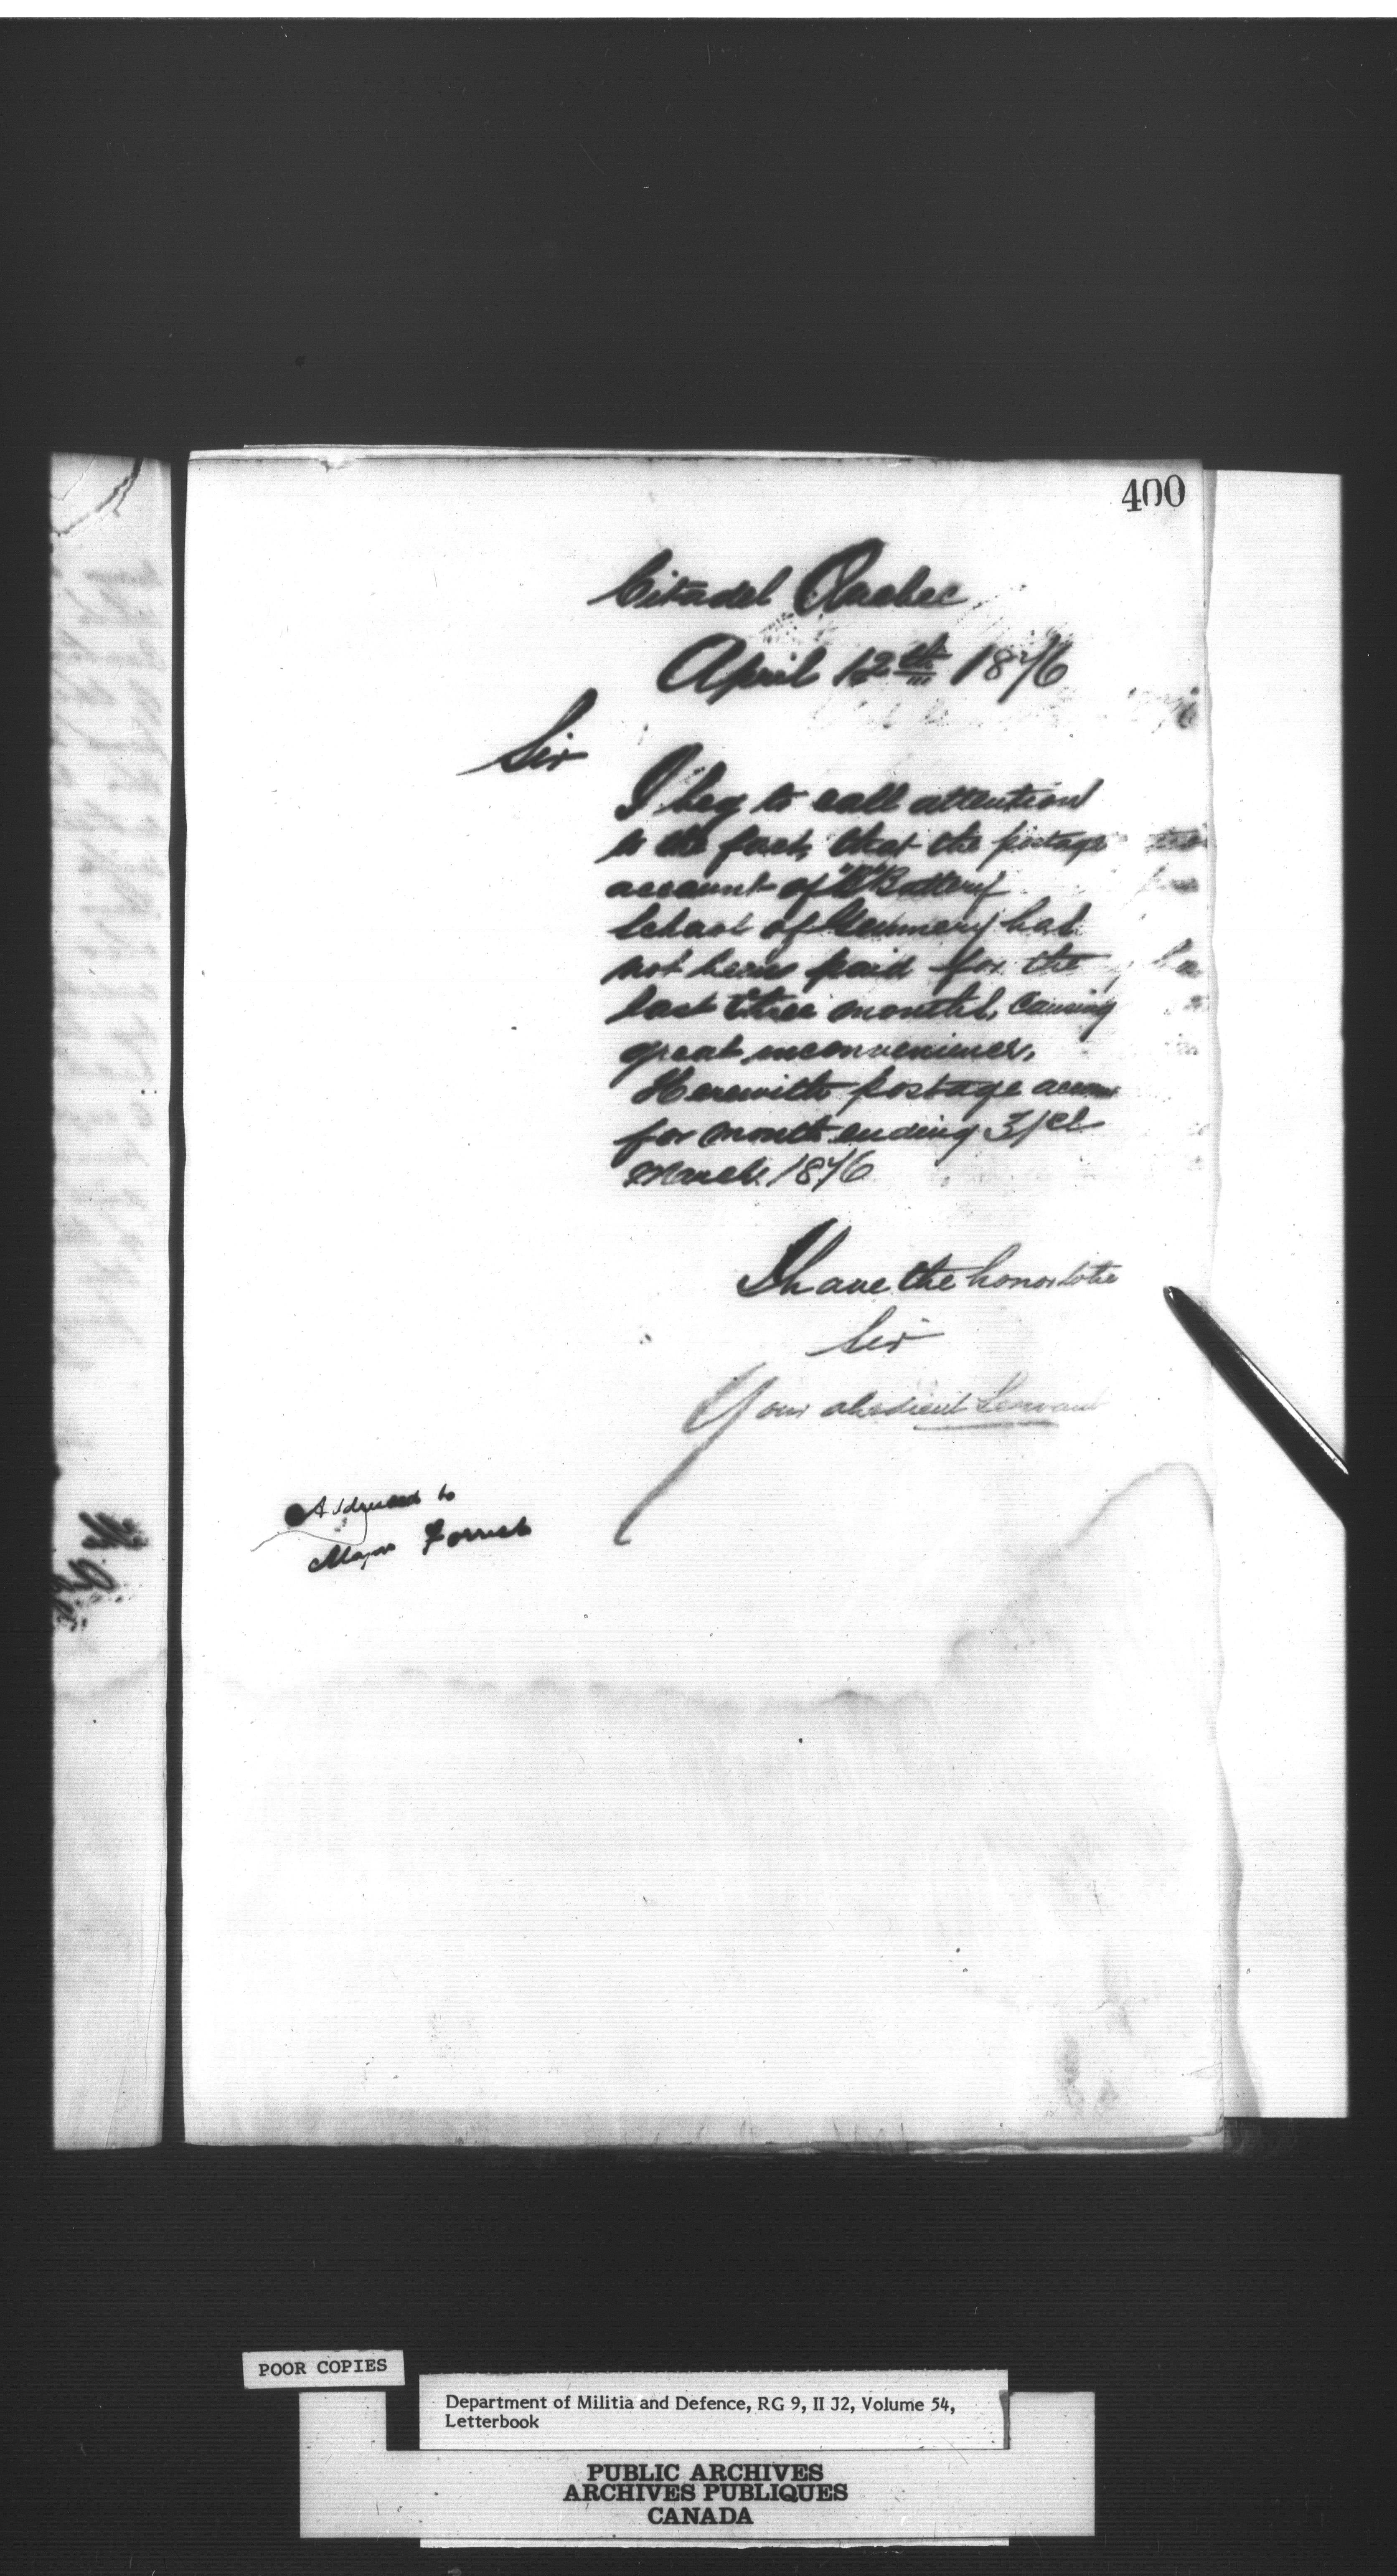 400
Citadel Quebec
April 12th 1876
Sir
I beg to call attention
to the fact, that the postage
account of "B" Battery
School of Gunnery has
not been paid for the
last three months, causing
great inconvenience,
Herewith postage account
for month ending 31st
March 1876
I have the honor to be
Sir
Your obedient Servant
Addressed to
Major Forrest
POOR COPIES
Department of Militia and Defence, RG 9, II J2, Volume 54,
Letterbook
PUBLIC ARCHIVES
ARCHIVES PUBLIQUES
CANADA